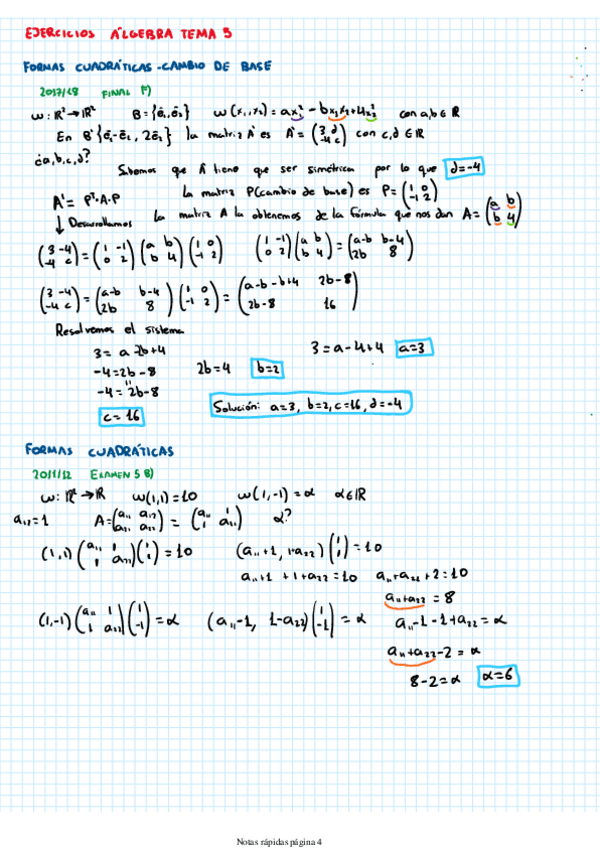 EJERCICIOS ÁLGEBRA TEMA 5
FORMAS CUADRÁTICAS - CAMBIO DE BASE
2017/18 FINAL 1º)
ω: ℝ² → ℝ² B = {ē₁, ē₂} ω(x₁, x₂) = ax₁² - bx₁x₂ + 4x₂² con a, b ∈ ℝ
En B' {ē₁ - ē₂, 2ē₂} la matriz A' es A' = (3 d / -4 c) con c, d ∈ ℝ
¿a, b, c, d?
Sabemos que A tiene que ser simétrica por lo que d = -4
A' = Pᵗ · A · P La matriz P (cambio de base) es P = (1 0 / -1 2)
↓ Desarrollamos La matriz A la obtenemos de la fórmula que nos dan A = (a b / b 4)
(3 -4 / -4 c) = (1 -1 / 0 2) (a b / b 4) (1 0 / -1 2) (1 -1 / 0 2) (a b / b 4) = (a-b b-4 / 2b 8)
(3 -4 / -4 c) = (a-b b-4 / 2b 8) (1 0 / -1 2) = (a-b-b+4 2b-8 / 2b-8 16)
Resolvemos el sistema
3 = a - 2b + 4 3 = a - 4 + 4 a = 3
-4 = 2b - 8 2b = 4 b = 2
-4 = 2b - 8
c = 16 Solución: a = 3, b = 2, c = 16, d = -4
FORMAS CUADRÁTICAS
2011/12 EXAMEN 5 B)
ω: ℝ² → ℝ ω(1,1) = 10 ω(1,-1) = α α ∈ ℝ
a₁₂ = 1 A = (a₁₁ a₁₂ / a₂₁ a₂₂) = (a₁₁ 1 / 1 a₂₂) α?
(1,1) (a₁₁ 1 / 1 a₂₂) (1 / 1) = 10 (a₁₁ + 1, 1 + a₂₂) (1 / 1) = 10
a₁₁ + 1 + 1 + a₂₂ = 10 a₁₁ + a₂₂ + 2 = 10
a₁₁ + a₂₂ = 8
(1,-1) (a₁₁ 1 / 1 a₂₂) (1 / -1) = α (a₁₁ - 1, 1 - a₂₂) (1 / -1) = α a₁₁ - 1 - 1 + a₂₂ = α
a₁₁ + a₂₂ - 2 = α
8 - 2 = α α = 6
Notas rápidas página 4